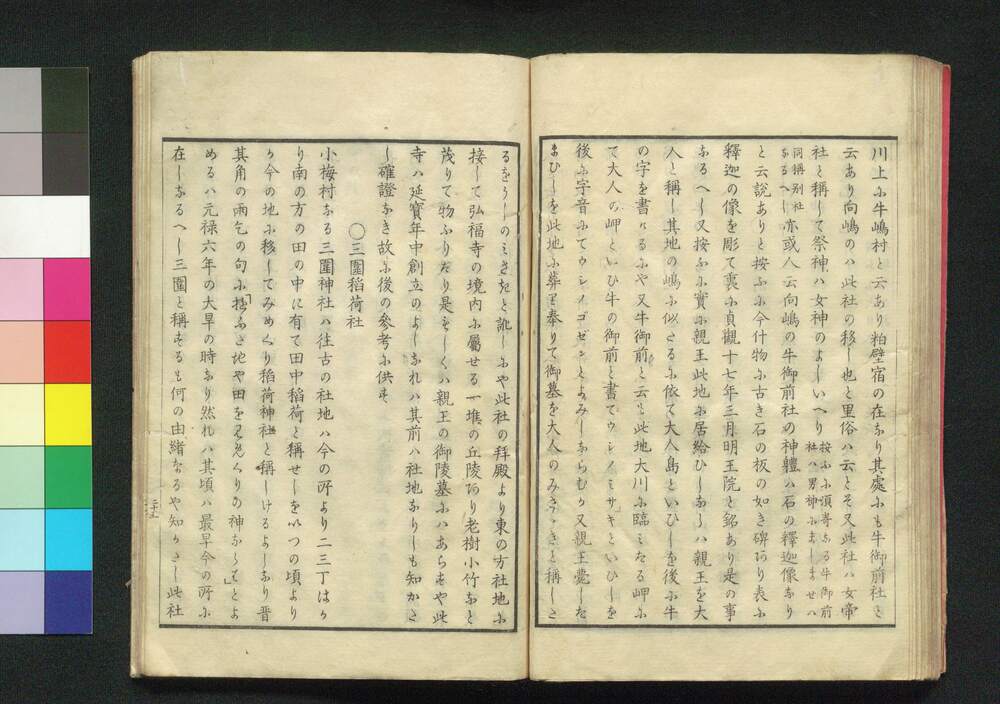 川上ふ牛嶋村と云あり粕壁宿の在なり其處ふも牛御前社と
云あり向嶋のハ此社の移し也と里俗ハ云とそ又此社ハ女帝
社と稱して祭神ハ女神のよしいへり 按ふふ須崎なる牛御前社ハ男神ふましませハ
同稱別社なるへし 亦或人云向嶋の牛御前社の神軆ハ石の釋迦像なり
と云説ありと按ふふ今什物ふ古き石の板の如き碑あり表ふ
釋迦の像を彫て裏ふ貞觀十七年三月明王院と銘あり是の事
なるへし又按ふふ實ふ親王此地ふ居給ひしならハ親王を大
人と稱し其地の嶋ふ似たる故ふ依て大人島といひしを後ふ牛
の字を書けるふや又牛御前と云も此地大川ふ臨ミたる岬ふ
て大人の岬といひ牛の御前と書てウシノミサキといひしを
後ふ字音ふてウシノゴゼンとよみしならむか又親王薨した
まひしを此地ふ葬り奉りて御墓を大人のみさゝきと稱した
るをうしのミさきと訛しふや此社の拜殿より東の方社地ふ
接して弘福寺の境内ふ屬せる一堆の丘陵あり老樹小竹なと
茂りて物ふりたり是もしくハ親王の御陵墓ふハあらすや此
寺ハ延寶年中創立のよしなれハ其前ハ社地なりしも知かた
し確證なき故ふ後の參考ふ供す
〇三圍稻荷社
小梅村なる三圍神社ハ往古の社地ハ今の所より二三丁はか
り南の方の田の中に有て田中稻荷と稱せしをいつの頃より
か今の地ふ移してみめくり稻荷神社と稱しけるよしなり晋
其角の雨乞の句ふ「ふた地や田をみめくりの神ならは」とよ
めるハ元禄六年の大旱の時なり然れハ其頃ハ最早今の所ふ
在しなるへし三圍と稱するも何の由緒なるや知かたし此社